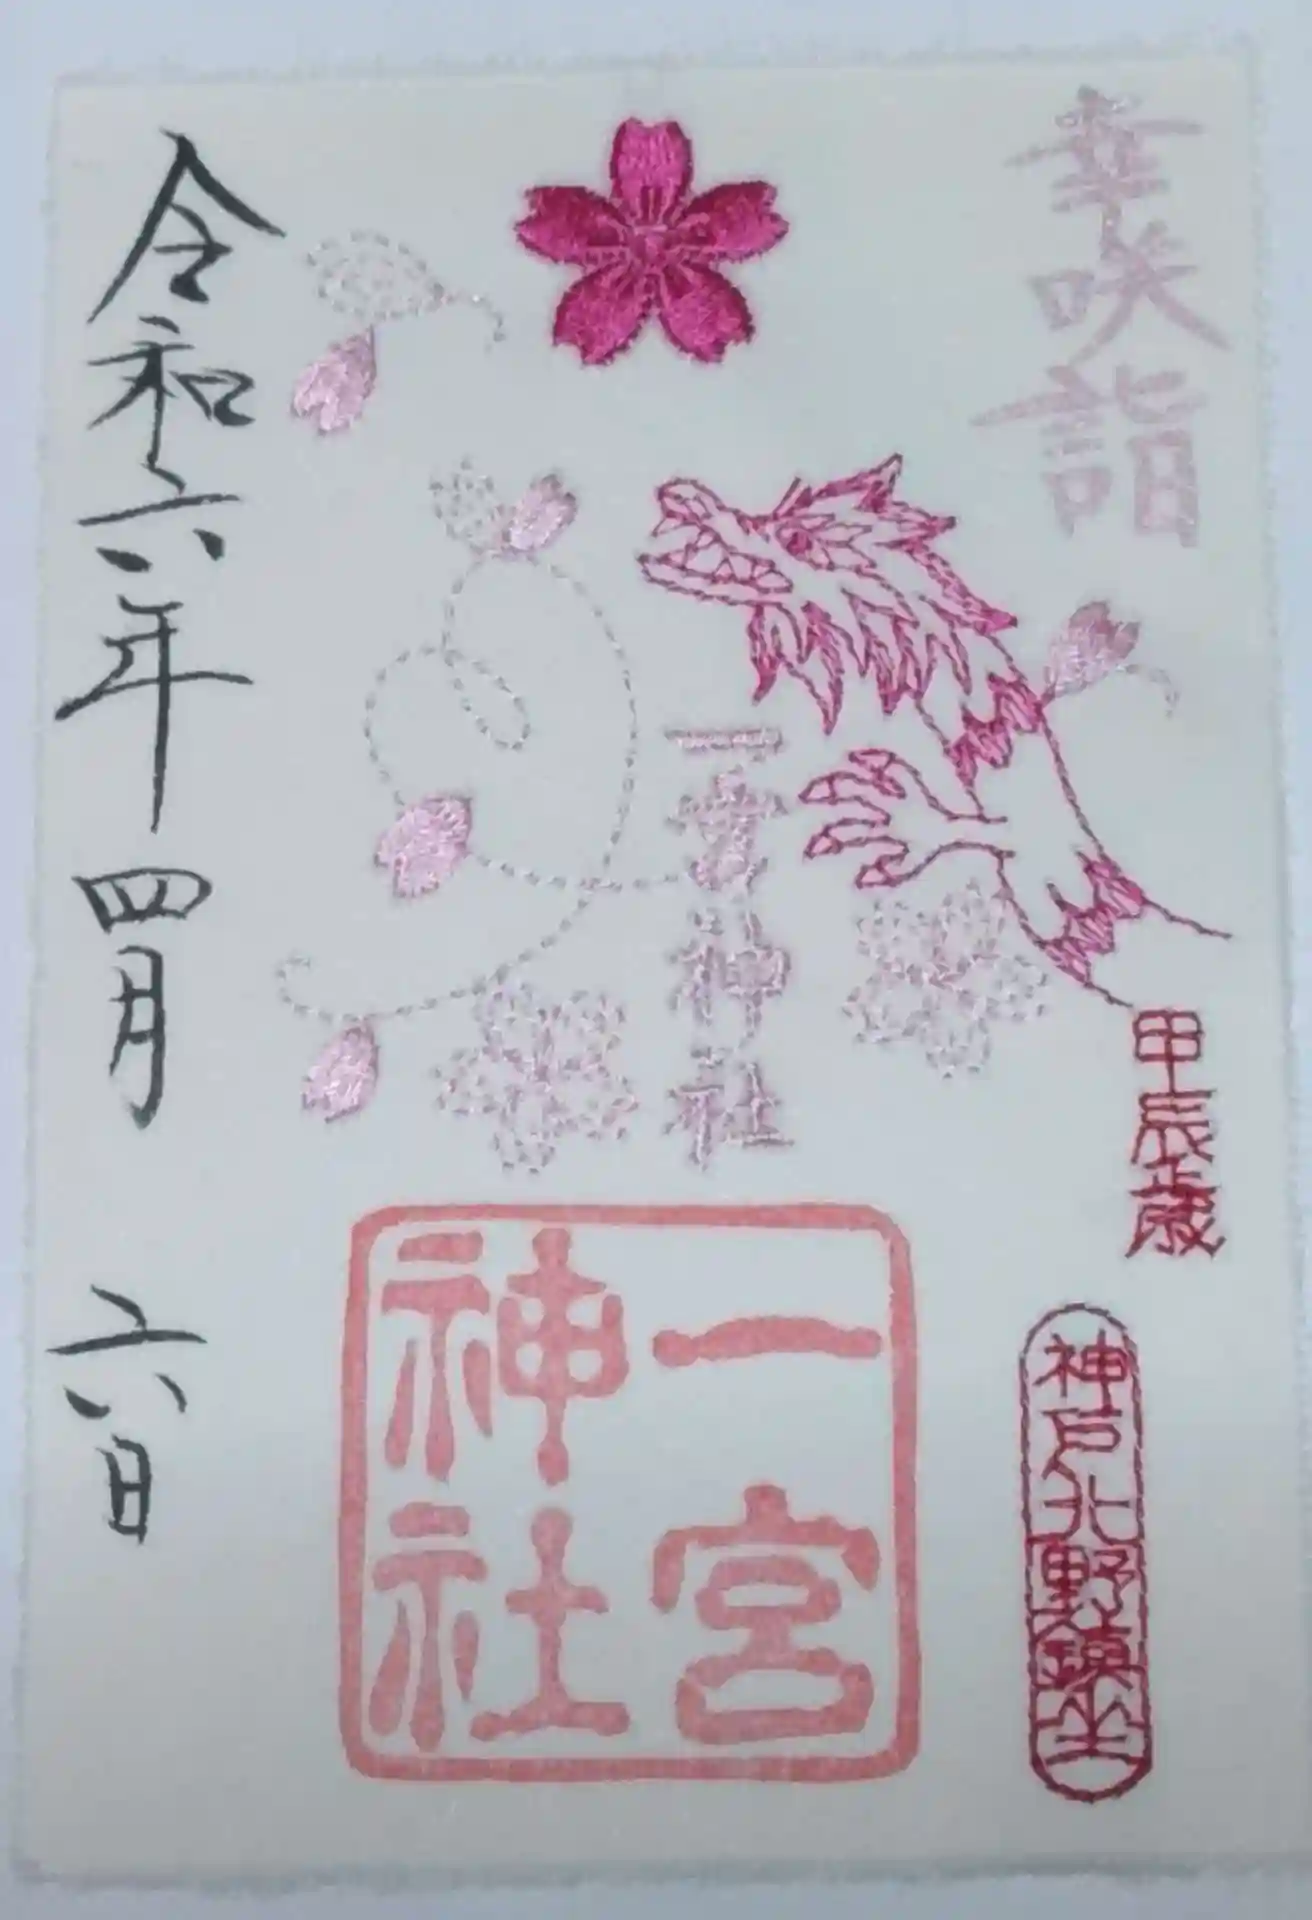 幸咲詣
甲辰歳
神戸北野鎮坐
一宮神社
一宮
神社
令和六年四月六日